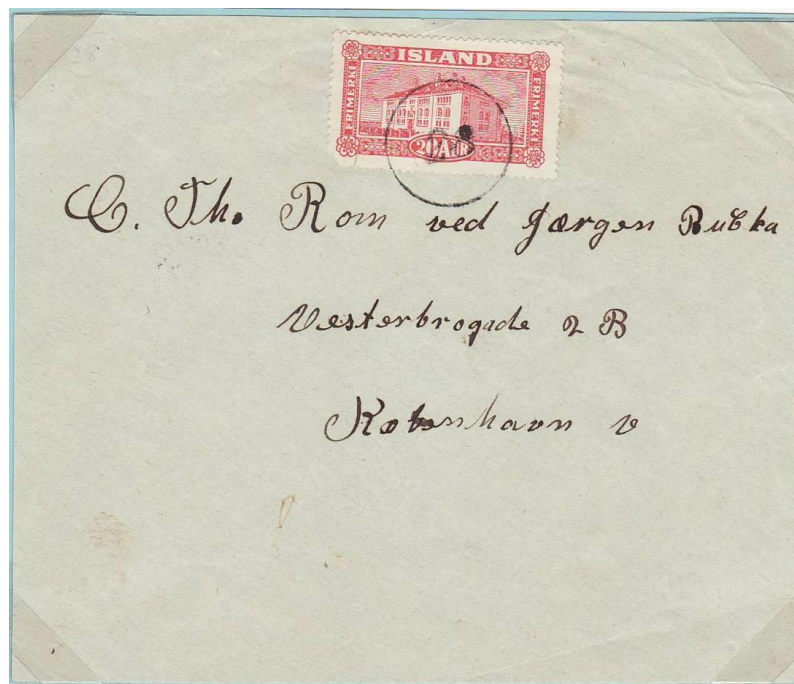 ISLAND
FRIMERKI
FRIMERKI
20 AUR
C. Th. Rom ved Jærgen Rubka
Vesterbrogade 2 B
København V